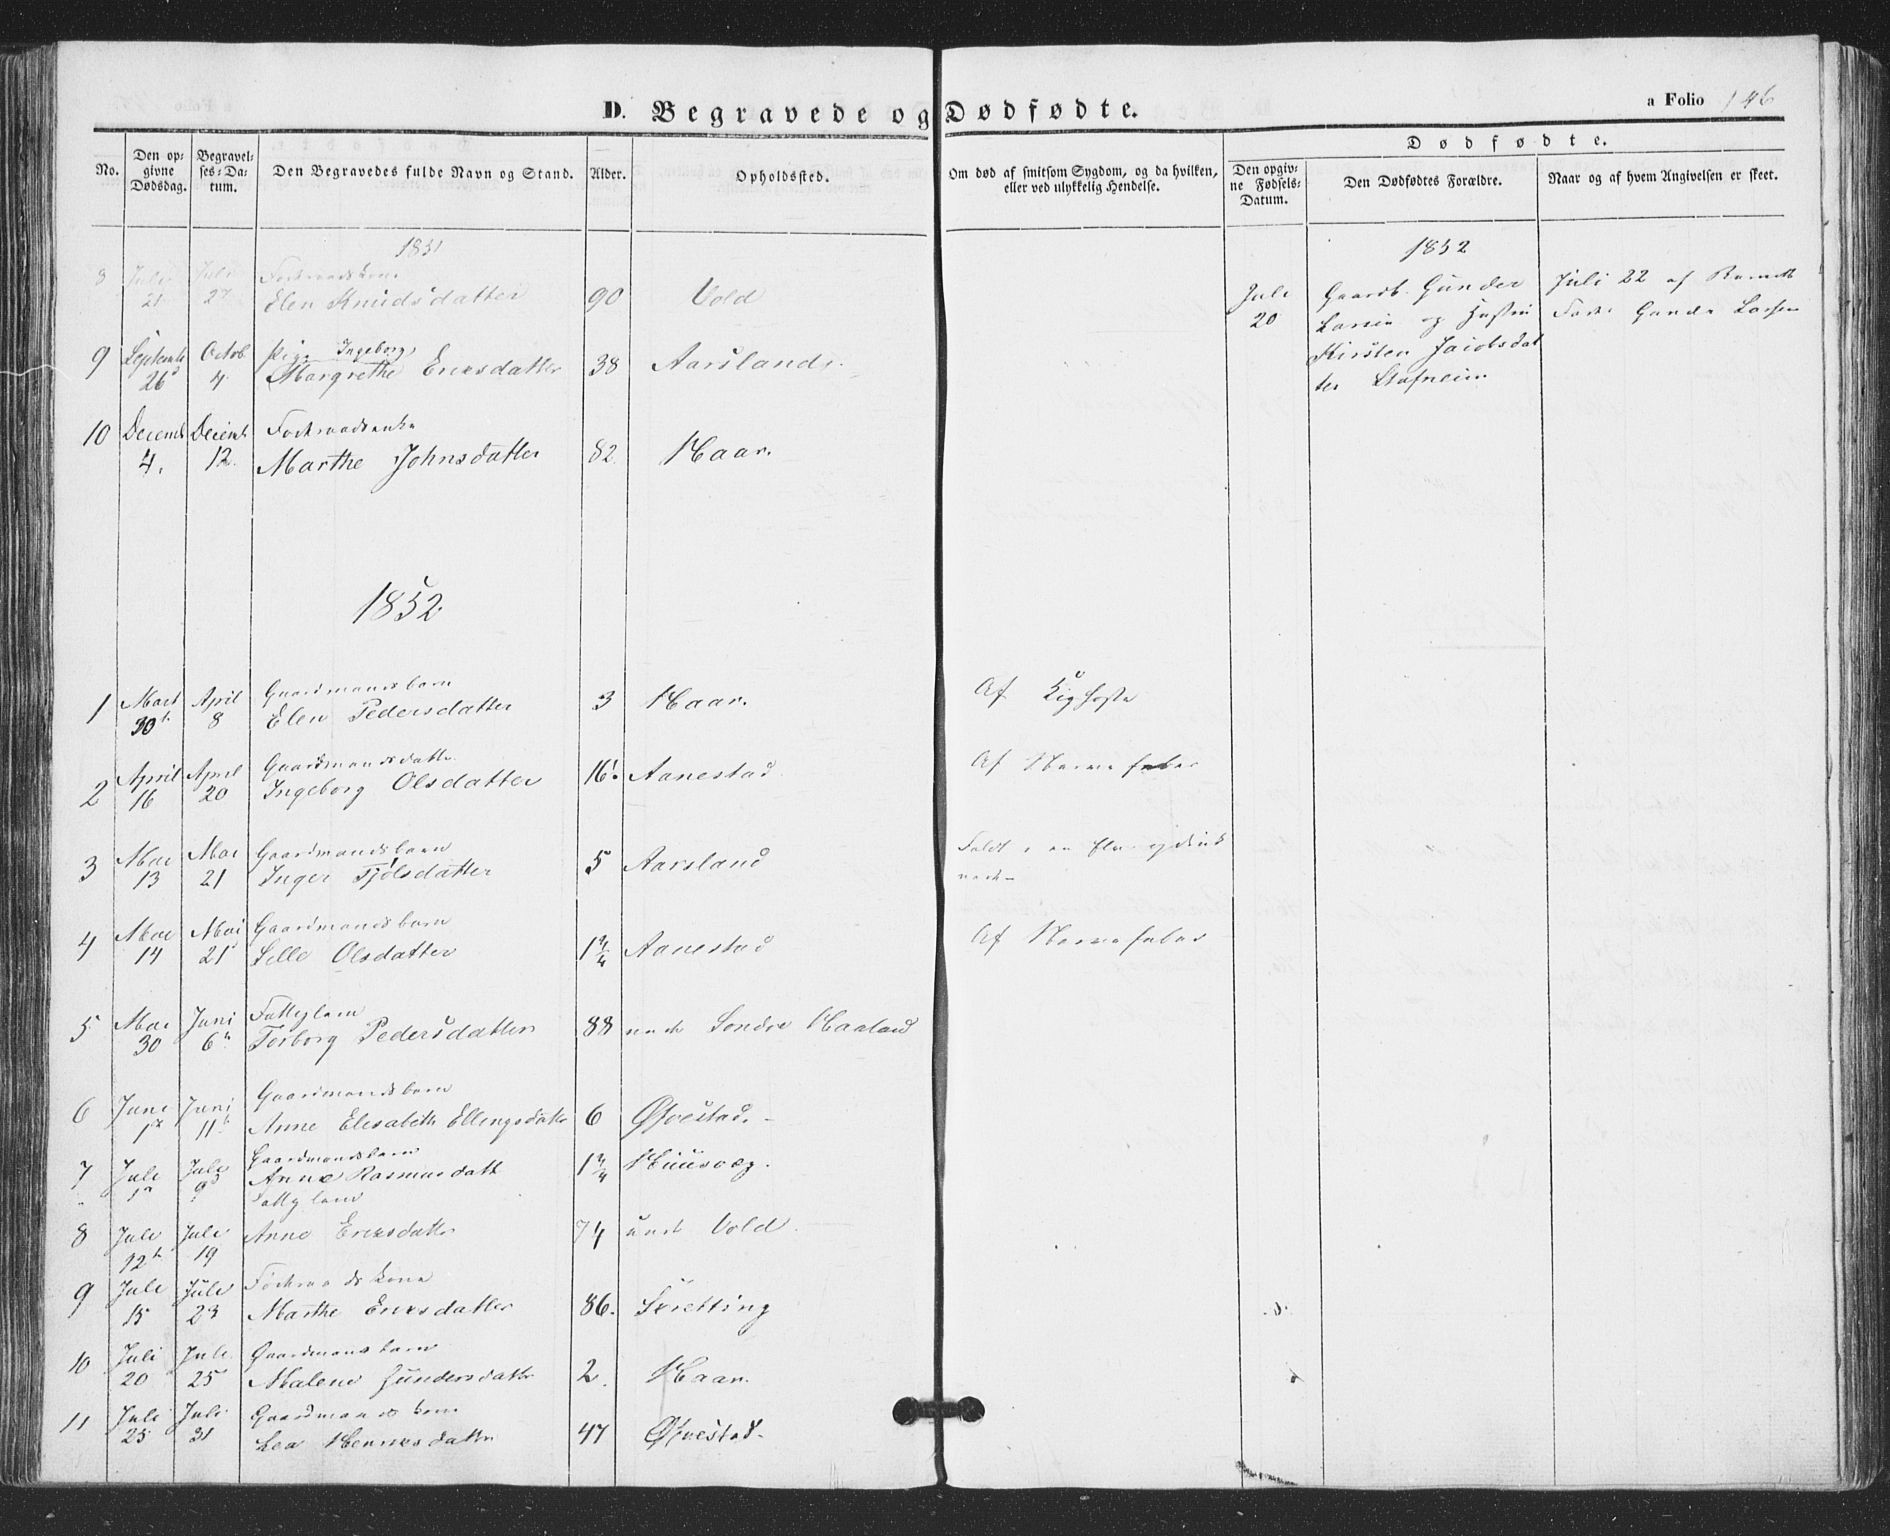 D. Begravede og Dødfødte.
a Folio 146
No.
Den op-
givne
Dødsdag.
Begravel-
ses-Da-
tum.
Den Begravedes fulde Navn og Stand.
Alder.
Opholdssted.
Om død af smitsom Sygdom, og da hvilken,
eller ved ulykkelig Hendelse.
Dødfødte.
Den opgiv-
ne Fødsels-
Datum.
Den Dødfødtes Forældre.
Naar og af hvem Angivelsen er skeet.
1851
8 Juli 21 Juli 27 Foderaadskone
Elen Knudsdatter 90 Vold
9 Septemb 26 Octob 4 Pige Ingeborg
Margrethe Ericsdatter 38 Aarsland
10 Decemb 4. Decemb 12. Foderaadsenke
Marthe Johnsdatter 82 Haar.
1852
Juli 20
Gaardb. Gunder
Larsen og Hustru
Kirsten Jacobsdat
ter Stafneim
Juli 22 af
Gunder Larsen
1852
1 Mart 30 April 8 Gaardmandsbarn
Elen Pedersdatter 3 Haar. Af Kighoste
2 April 16 April 20 Gaardmandsdatter
Ingeborg Olsdatter 16 Aanestad Af Nervefeber
3 Mai 13 Mai 21 Gaardmandsbarn
Inger Tjølsdatter 5 Aarsland Faldt i en Elv og druk
nede
4 Mai 14 Mai 21 Gaardmandsbarn
Selle Olsdatter 1 3/4 Aanestad Af Nervefeber
5 Mai 30 Juni 6 Fattiglem
Torborg Pedersdatter 88 under Søndre Haaland
6 Juni 1 Juni 11 Gaardmandsbarn
Anne Elisabeth Ellingsdatter 6 Øvrestad.
7 Juli 1 Juli 9 Gaardmandsbarn
Anne Rasmusdatt 1 3/4 Huusvæg.
8 Juli 12 Juli 19 Fattiglem
Anne Ericsdatter 74 under Vold
9 Juli 15 Juli 23 Foderaadskone
Marthe Ericsdatter 86. Skretting
10 Juli 20 Juli 25 Gaardmansbarn
Malene Gundersdatter 2. Haar.
11 Juli 25 Juli 31 Gaardmandskone
Lea Henricsdatter 47 Øvrestad.